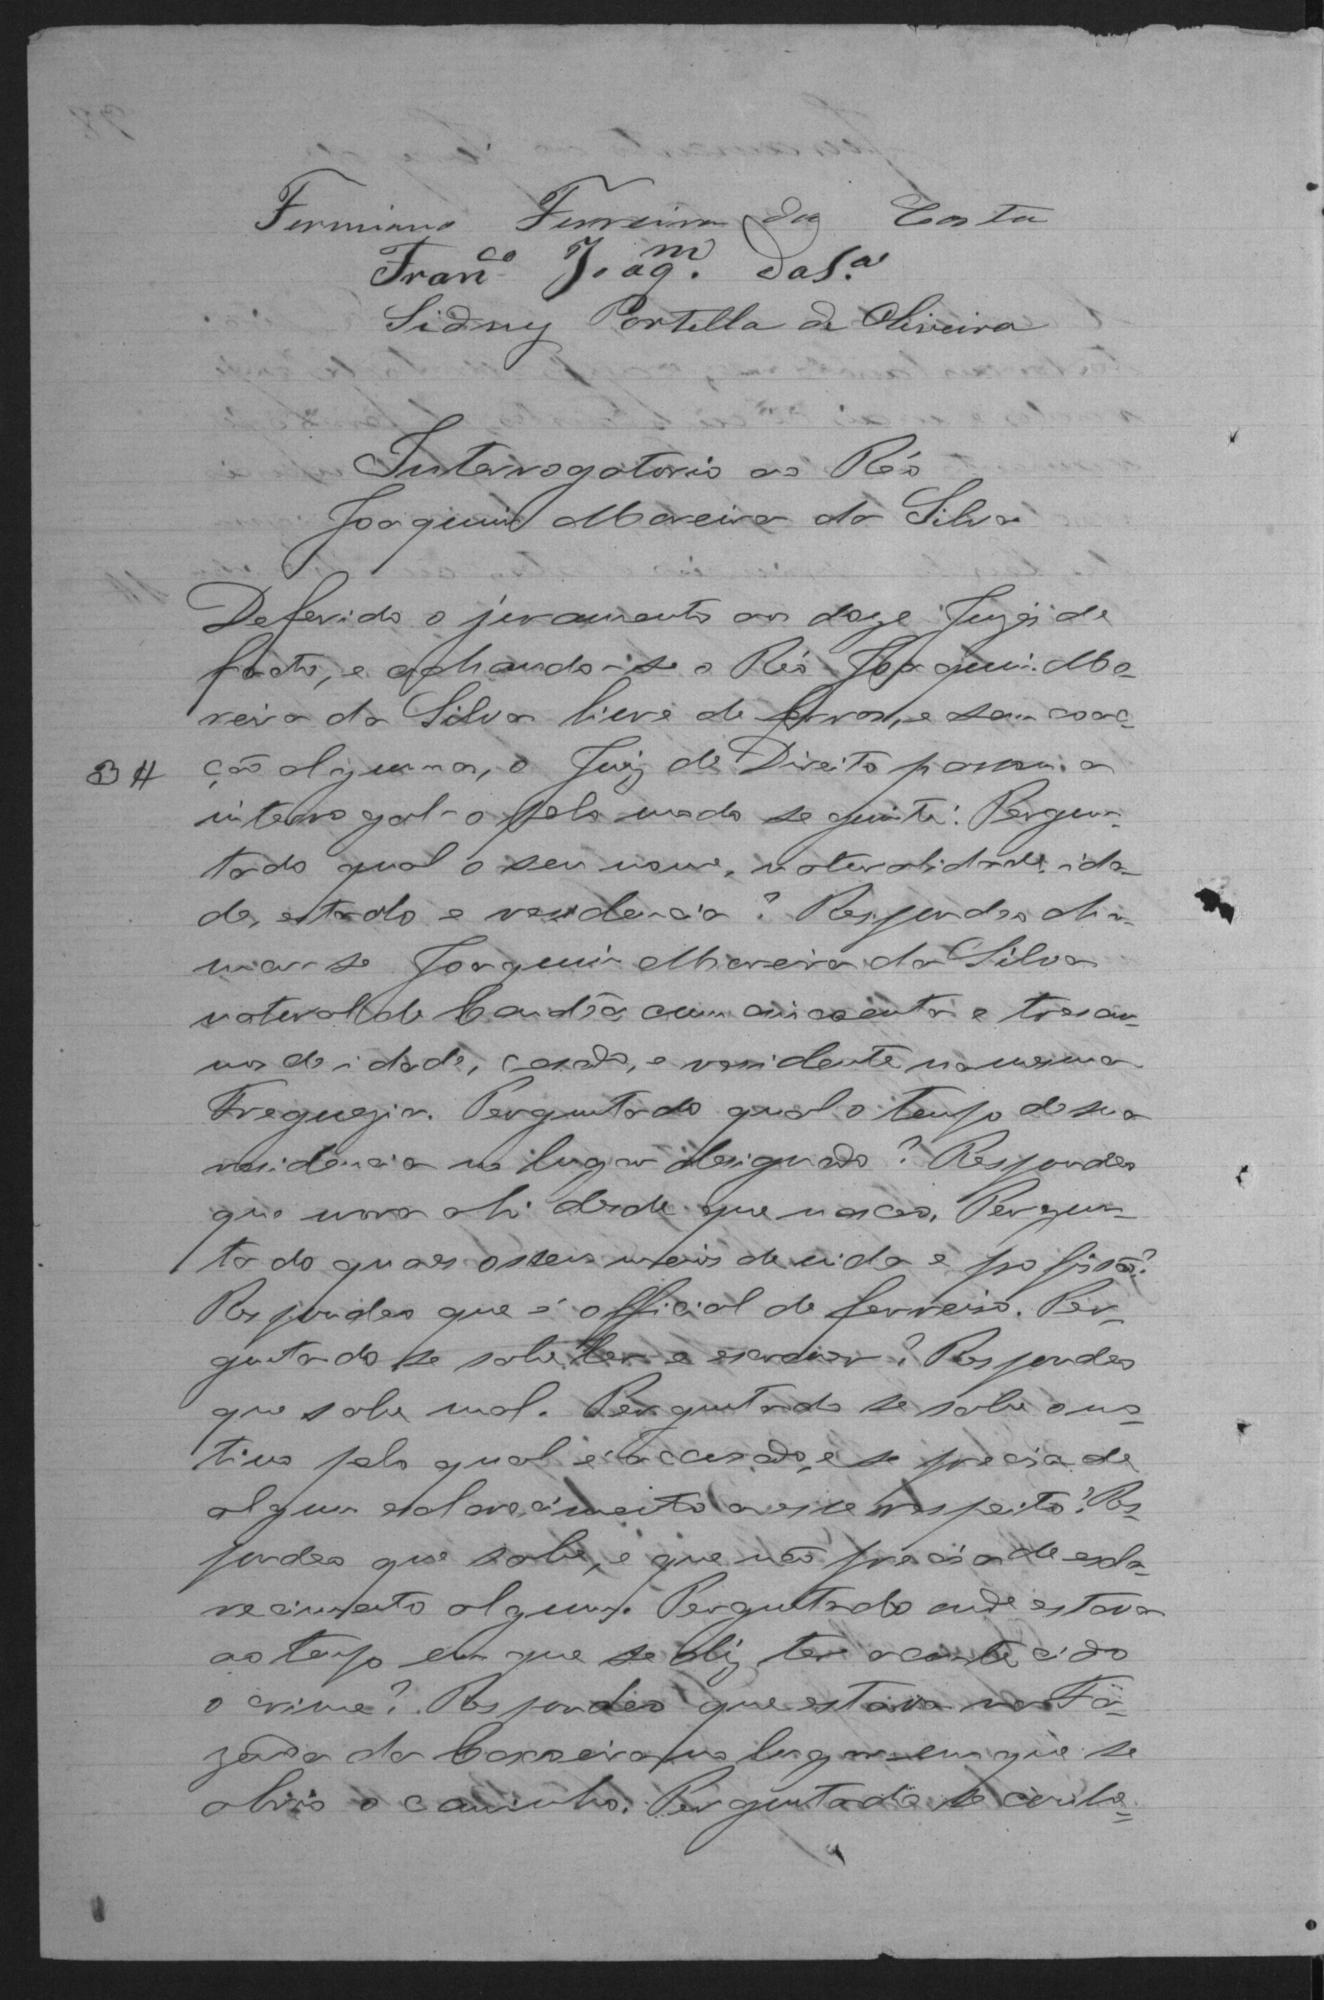 Fermiano Ferreira da Costa
Franco Joaqm. da Sa
Sidney Portella de Oliveira
Interrogatorio ao Réo
Joaquim Moreira da Silva
Deferido o juramento aos doze Juizes de
facto, e achando-se o Réo Joaquim Mo-
reira da Silva livre de ferros, e sem coac-
ção alguma, o Juiz de Direito passou a
interrogal-o pelo modo seguinte: Pergun-
tado qual o seu nome, naturalidade, ida-
de, estado e residencia? Respondeo cha-
mar-se Joaquim Moreira da Silva
natural de com cincoenta e tres an-
nos de idade, casado, e residente na mesma
Freguezia. Perguntado qual o tempo de sua
residencia no lugar designado? Respondeo
que mora ahi desde que nasceo. Pergun-
tado quaes os seus meios de vida e profissão?
Respondeo que é official de ferreiro. Per-
guntado se sabe ler e escrever? Respondeo
que sabe mal. Perguntado se sabe o mo-
tivo pelo qual é accusado, e se precisa de
algum esclarecimento a esse respeito? Res-
pondeo que sabe, e que não precisa de escla-
recimento algum. Perguntado onde estava
ao tempo em que se diz ter acontecido
o crime? Respondeo que estava na Fa-
zenda da no lugar em que se
abrio o caminho. Perguntado se conhe-